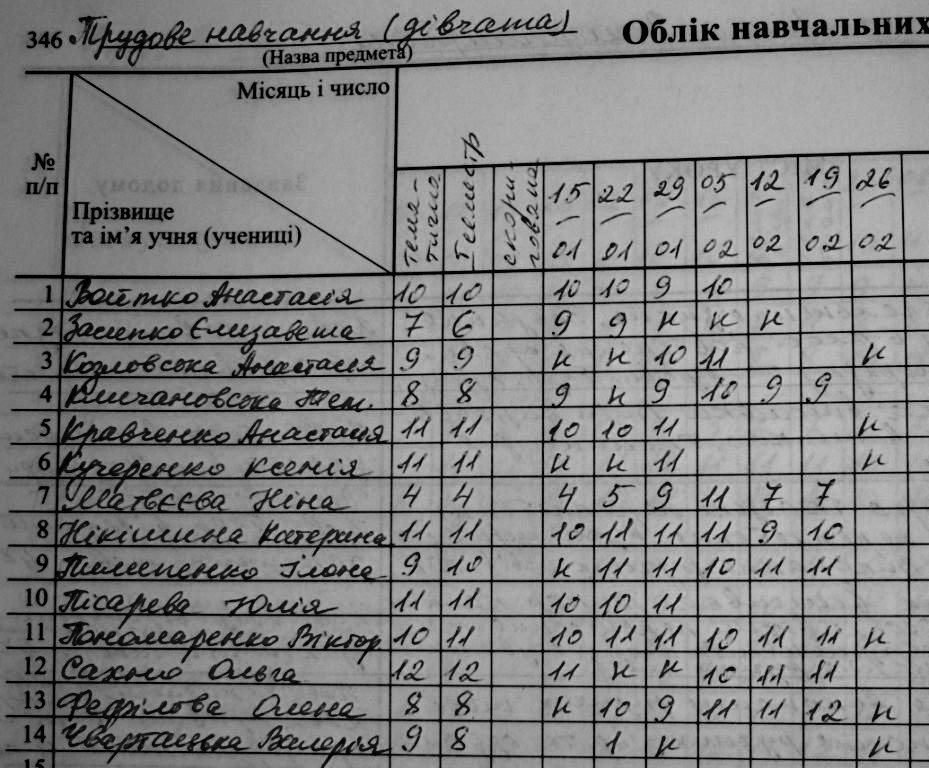 346 • Трудове навчання (дівчата) Облік навчальних
(Назва предмета)
Місяць і число
№ п/п
Прізвище
та ім’я учня (учениці)
тема-тично
I семестр
скори-говано
15/01 22/01 29/01 05/02 12/02 19/02 26/02
1 Войтко Анастасія 10 10 10 10 9 10
2 Засипко Єлизавета 7 6 9 9 н н н
3 Козловська Анастасія 9 9 н н 10 11 н
4 8 8 9 н 9 10 9 9
5 Кравченко Анастасія 11 11 10 10 11 н
6 Кучеренко Ксенія 11 11 н н 11 н
7 Матвєєва Ніна 4 4 4 5 9 11 7 7
8 Нікішина Катерина 11 11 10 11 11 11 9 10
9 Пилипенко Ілона 9 10 н 11 11 10 11 11
10 Пісарева Юлія 11 11 10 10 11
11 Пономаренко Віктор. 10 11 10 11 11 10 11 11 н
12 Сахно Ольга 12 12 11 н н 10 11 11
13 Федрілова Олена 8 8 н 10 9 11 11 12 н
14 Чвартацька Валерія 9 8 1 н н
15